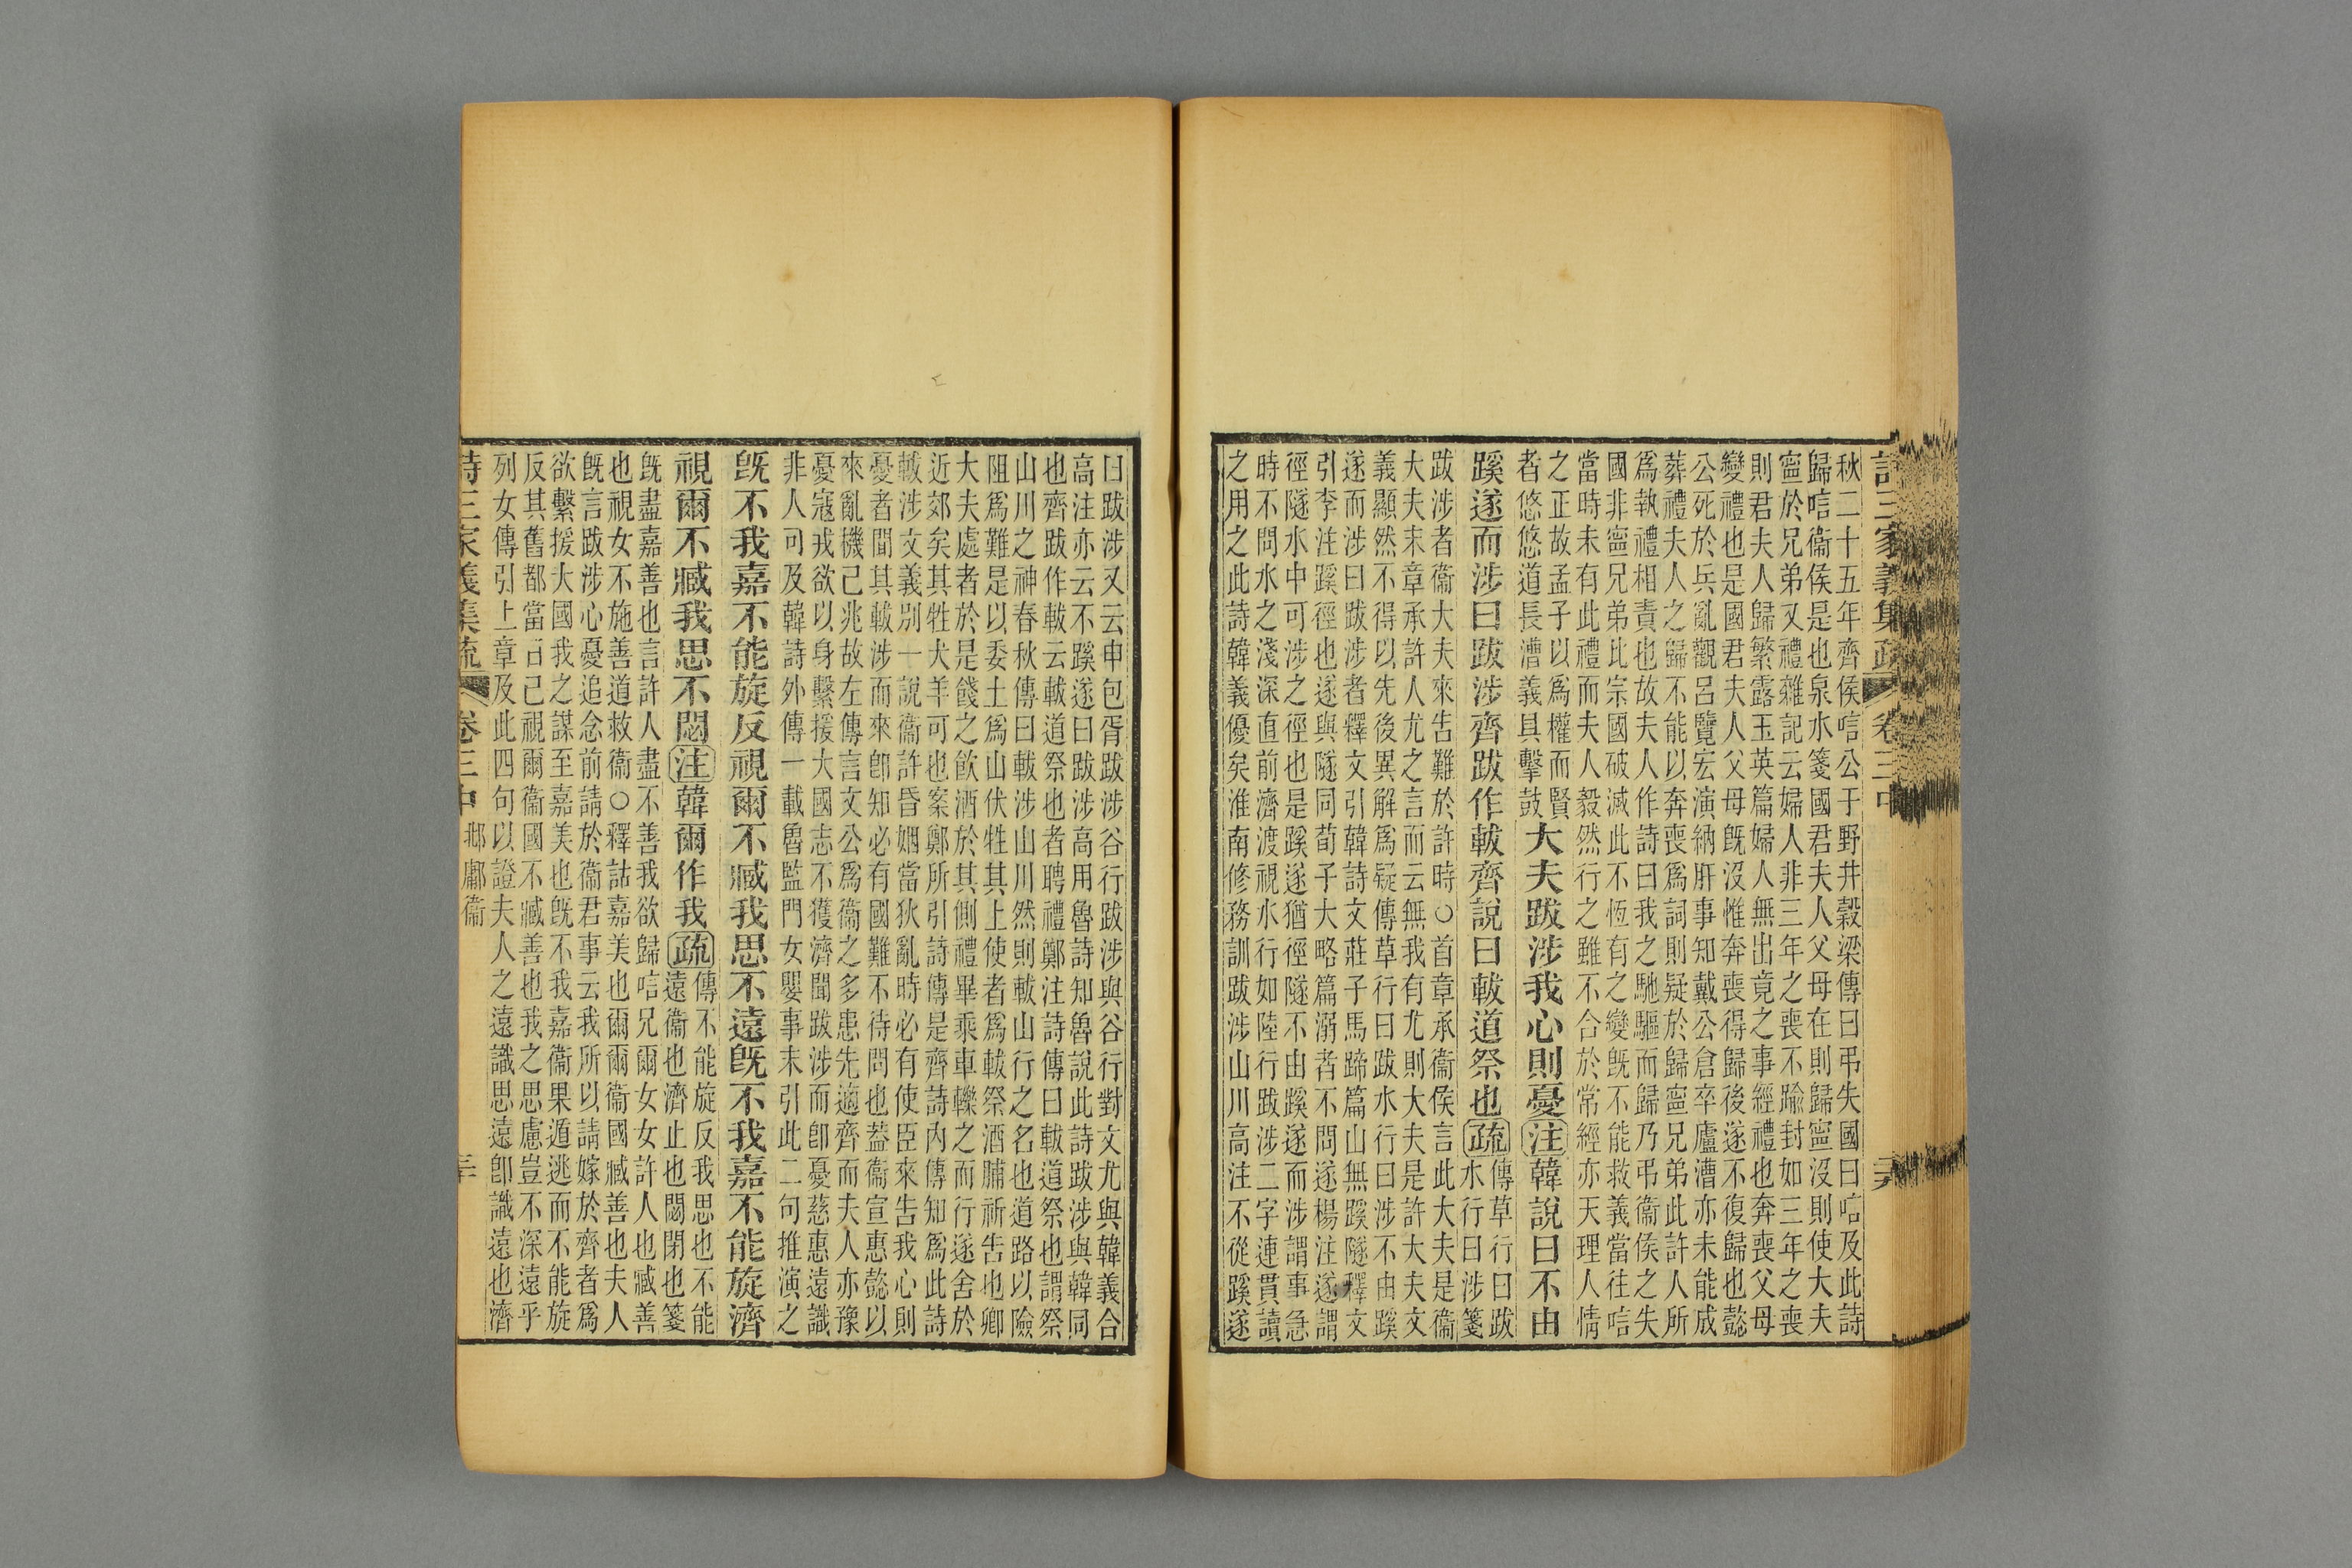 詩三家義集疏 卷三中
秋二十五年齊侯唁公于野井穀梁傳曰弔失國曰唁及此詩
歸唁衞侯是也泉水箋國君夫人父母在則歸寧沒則使大夫
寧於兄弟又禮雜記云婦人非三年之喪不踰封如三年之喪
則君夫人歸繁露玉英篇婦人無出竟之事經禮也奔喪父母
變禮也是國君夫人父母旣沒惟奔喪得歸後遂不復歸也懿
公死於兵亂觀呂覽宏演納肝事知戴公倉卒廬漕亦未能成
葬禮夫人之歸不能以奔喪爲詞則疑於歸寧兄弟此許人所
爲執禮相責也故夫人作詩曰我之馳驅而歸乃弔衞侯之失
國非寧兄弟比宗國破滅此不恆有之變旣不能救義當往唁
當時未有此禮而夫人毅然行之雖不合於常經亦天理人情
之正故孟子以爲權而賢
者悠悠道長漕義具擊鼓
大夫跋涉我心則憂注韓說曰不由
蹊遂而涉曰跋涉齊跋作軷齊說曰軷道祭也疏
傳草行曰跋
水行曰涉箋
跋涉者衞大夫來告難於許時○首章承衞侯言此大夫是衞
大夫末章承許人尤之言而云無我有尤則大夫是許大夫文
義顯然不得以先後異解爲疑傳草行曰跋水行曰涉不由蹊
遂而涉曰跋涉者釋文引韓詩文莊子馬蹄篇山無蹊隧釋文
引李注蹊徑也遂與隧同荀子大略篇溺者不問遂楊注遂謂
徑隧水中可涉之徑也是蹊遂猶徑隧不由蹊遂而涉謂事急
時不問水之淺深直前濟渡視水行如陸行跋涉二字連貫讀
之用之此詩韓義優矣淮南修務訓跋涉山川高注不從蹊遂
曰跋涉又云申包胥跋涉谷行跋涉與谷行對文尤與韓義合
高注亦云不蹊遂曰跋涉高用魯詩知魯說此詩跋涉與韓同
也齊跋作軷云軷道祭也者聘禮鄭注詩傳曰軷道祭也謂祭
山川之神春秋傳曰軷涉山川然則軷山行之名也道路以險
阻爲難是以委土爲山伏牲其上使者爲軷祭酒脯祈告也卿
大夫處者於是餞之飮酒於其側禮畢乘車轢之而行遂舍於
近郊矣其牲犬羊可也案鄭所引詩傳是齊詩內傳知爲此詩
軷涉文義別一說衞許昏姻當狄亂時必有使臣來告我心則
憂者聞其軷涉而來卽知必有國難不待問也葢衞宣惠懿以
來亂機己兆故左傳言文公爲衞之多患先適齊而夫人亦豫
憂寇戎欲以身繫援大國志不獲濟聞跋涉而卽憂慈惠遠識
非人可及韓詩外傳一載魯監門女嬰事末引此二句推演之
旣不我嘉不能旋反視爾不臧我思不遠旣不我嘉不能旋濟
視爾不臧我思不閟注韓爾作我疏
傳不能旋反我思也不能
遠衞也濟止也閟閉也箋
旣盡嘉善也言許人盡不善我欲歸唁兄爾女女許人也臧善
也視女不施善道救衞○釋詁嘉美也爾爾衞國臧善也夫人
旣言跋涉心憂追念前請於衞君事云我所以請嫁於齊者爲
欲繫援大國我之謀至嘉美也旣不我嘉衞果遁逃而不能旋
反其舊都當日己視爾衞國不臧善也我之思慮豈不深遠乎
列女傳引上章及此四句以證夫人之遠識思遠卽識遠也濟
詩三家義集疏 卷三中 邶鄘衞